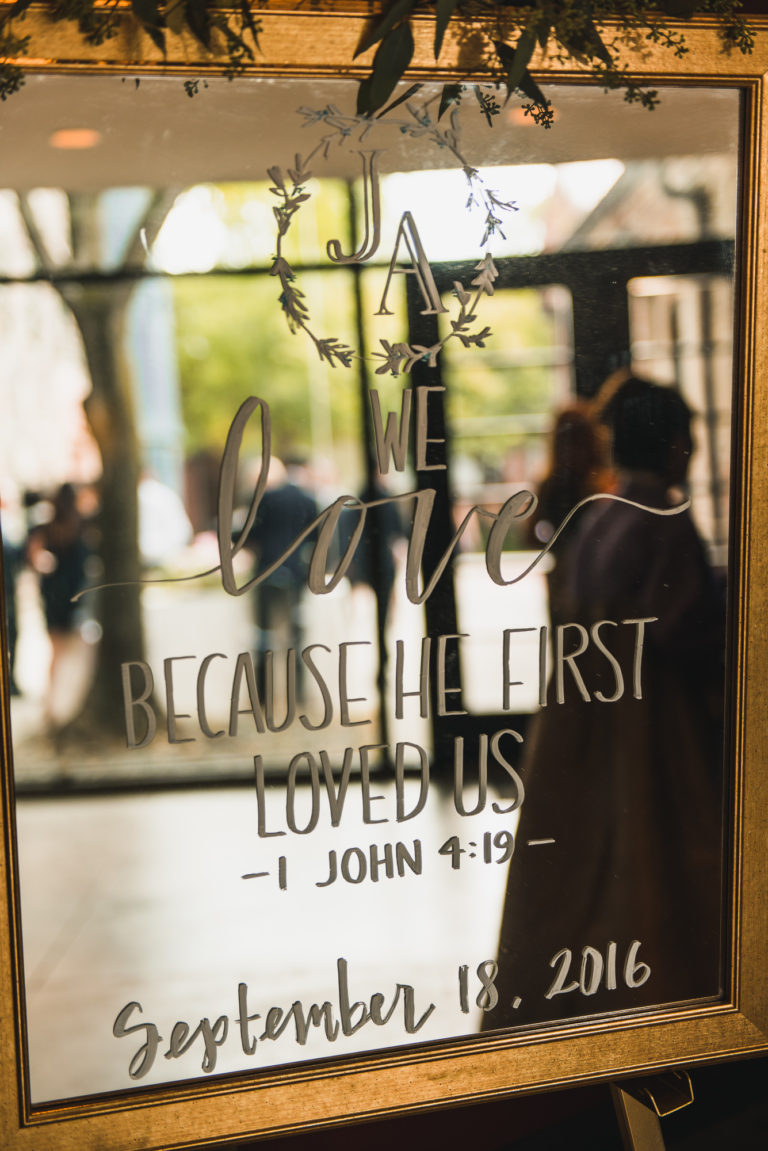 J
A
WE
love
BECAUSE HE FIRST
LOVED US
- 1 JOHN 4:19 -
September 18, 2016